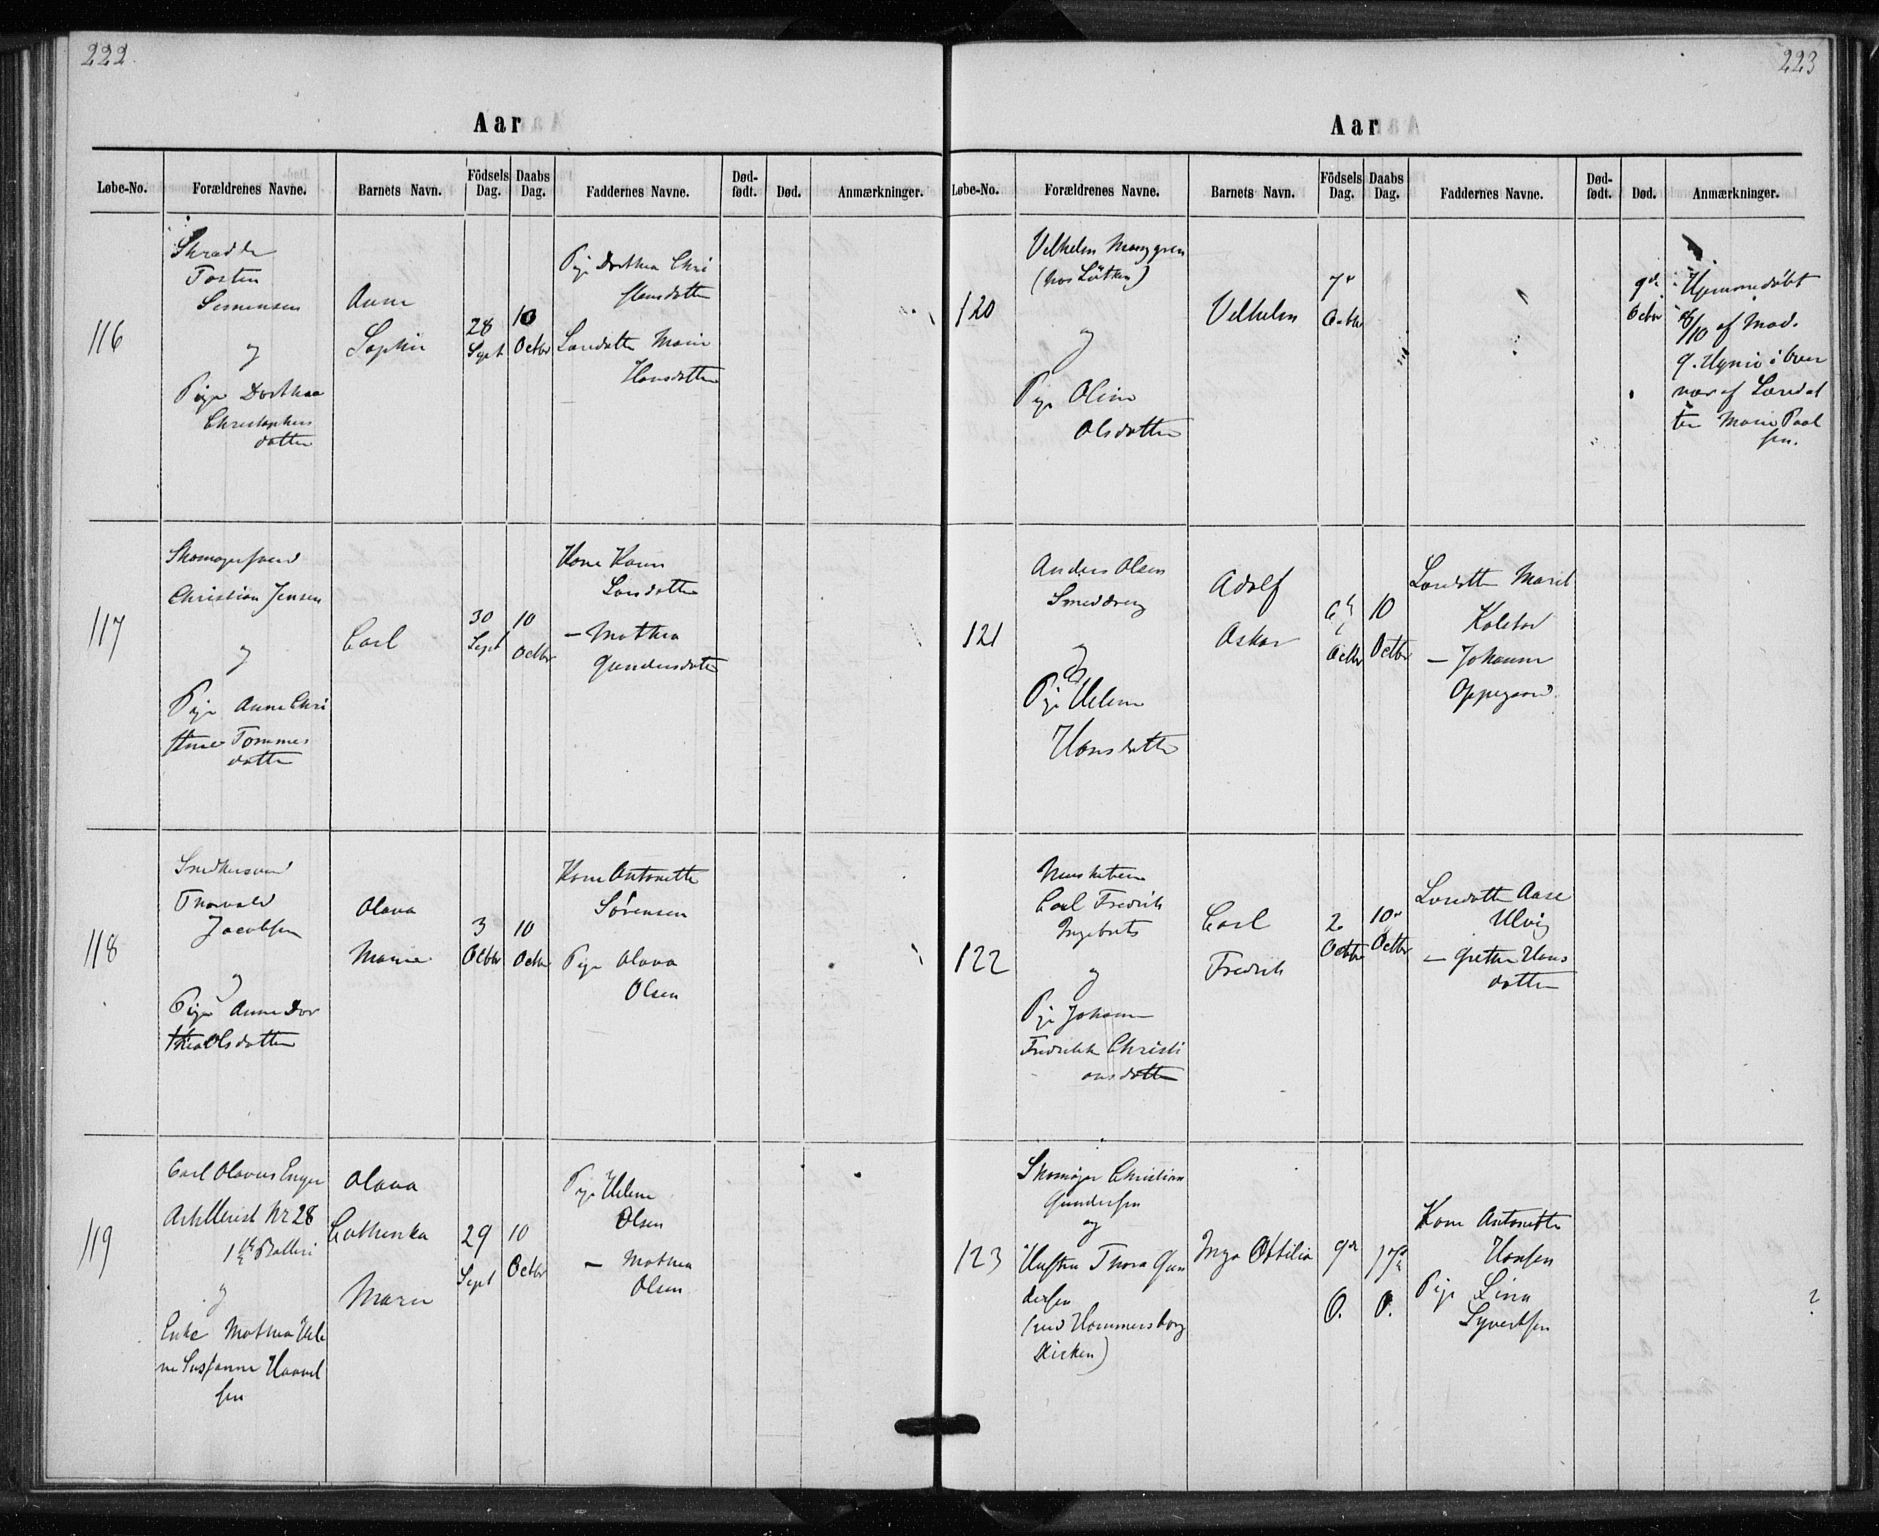 222
Aar
Løbe-No.
Forældrenes Navne.
Barnets Navn.
Födsels Dag.
Daabs Dag.
Faddernes Navne.
Død-født.
Død.
Anmærkninger.
116
Tosten
Simensen
og
Pige Dorthea
Christophers
datter
Anne
Sophie
28
Sept
10
Octbr
Pige Dorthea Chri
stensdatter
Marie
Hansdatter
117
Skomagersvend
Christian Jensen
og
Pige Anne Chri
stine Tommes
datter
Carl
30
Sept
10
Octbr
Kone Karen
Larsdatter
— Mathea
Gundersdatter
118
Snedkersvend
Thorvald
Jacobsen
og
Pige Anne Dor
thea Olsdatter
Olava
Marie
3
Octbr
10
Octbr
Kone Antonette
Sørensen
Pige Olava
Olsen
119
Carl Olavus Enger
Artillerist Nr 28
1ste Batteri
og
Enke Mathea Hele
ne Susanne
sen
Olava
Cathinka
Maren
29
Sept
10
Octbr
Pige Helene
Olsen
— Mathea
Olsen
223
Aar
Løbe-No.
Forældrenes Navne.
Barnets Navn.
Födsels Dag.
Daabs Dag.
Faddernes Navne.
Død-født.
Død.
Anmærkninger.
120
Vilhelm
(hos Lütken)
og
Pige Oline
Olsdatter
Vilhelm
7de
Octbr
9de
Octbr
Hjemmedøbt
8/10 af Mad.
nær af
Marie Paul
sen.
121
Anders Olsen
Smeddreng
og
Pige Helene
Hansdatter
Adolf
Oskar
6te
Octbr
10
Octbr
Marit
Kolstad
— Johanne
Oppegaard
122
Carl Fredrik
Ingebrets
og
Pige Johanne
Fredrikke Christi
ansdatter
Carl
Fredrik
2
Octbr
10de
Octbr
Aase
Ulvig
— Grethe Hans
datter
123
Skomager Christian
Gundersen
og
Hustru Thora Gun
dersen
(ved Hammersborg
Kirken)
Inga Ottilia
9de
O.
17de
O.
Kone Antonette
Hansen
Pige Lina
Syvertsen
?